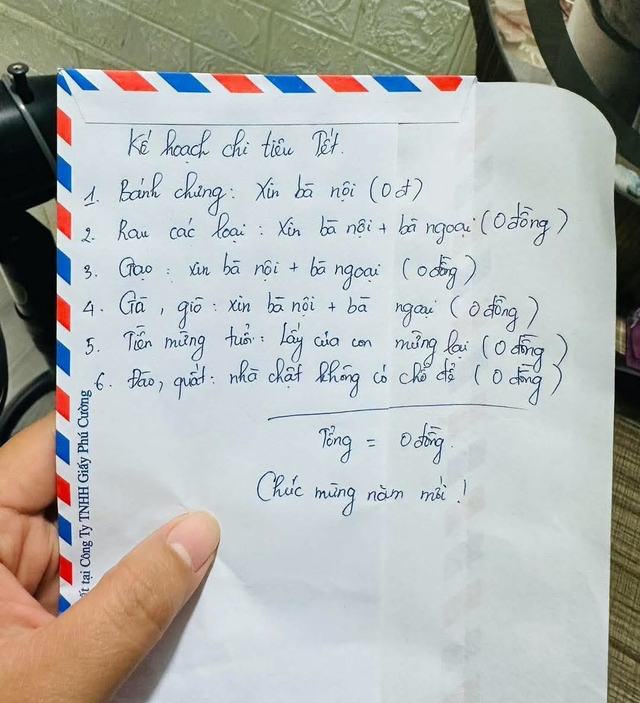 Kế hoạch chi tiêu Tết.
1. Bánh chưng: Xin bà nội (0đ)
2. Rau các loại: Xin bà nội + bà ngoại (0 đồng)
3. Gạo: xin bà nội + bà ngoại (0 đồng)
4. Gà, giò: xin bà nội + bà ngoại (0 đồng)
5. Tiền mừng tuổi: Lấy của con mừng lại (0 đồng)
6. Đào, quất: nhà chật không có chỗ để (0 đồng)
Tổng = 0 đồng.
Chúc mừng năm mới!
tại Công Ty TNHH Giấy Phú Cường